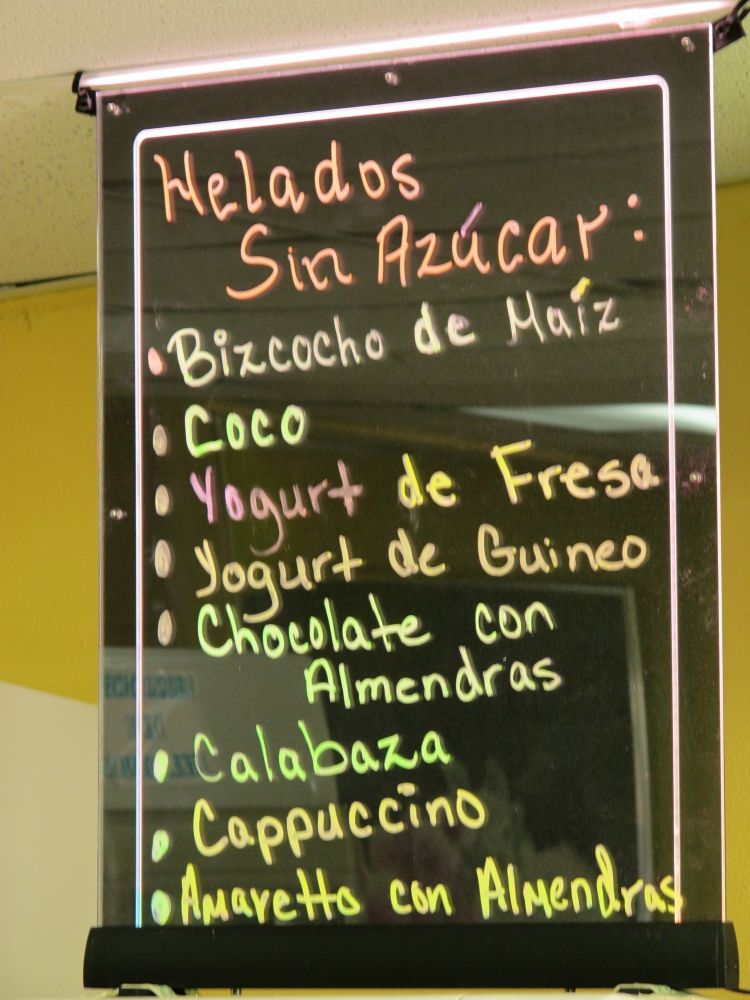 Helados
Sin Azúcar:
• Bizcocho de Maíz
• Coco
• Yogurt de Fresa
• Yogurt de Guineo
• Chocolate con
Almendras
• Calabaza
• Cappuccino
• Amaretto con Almendras